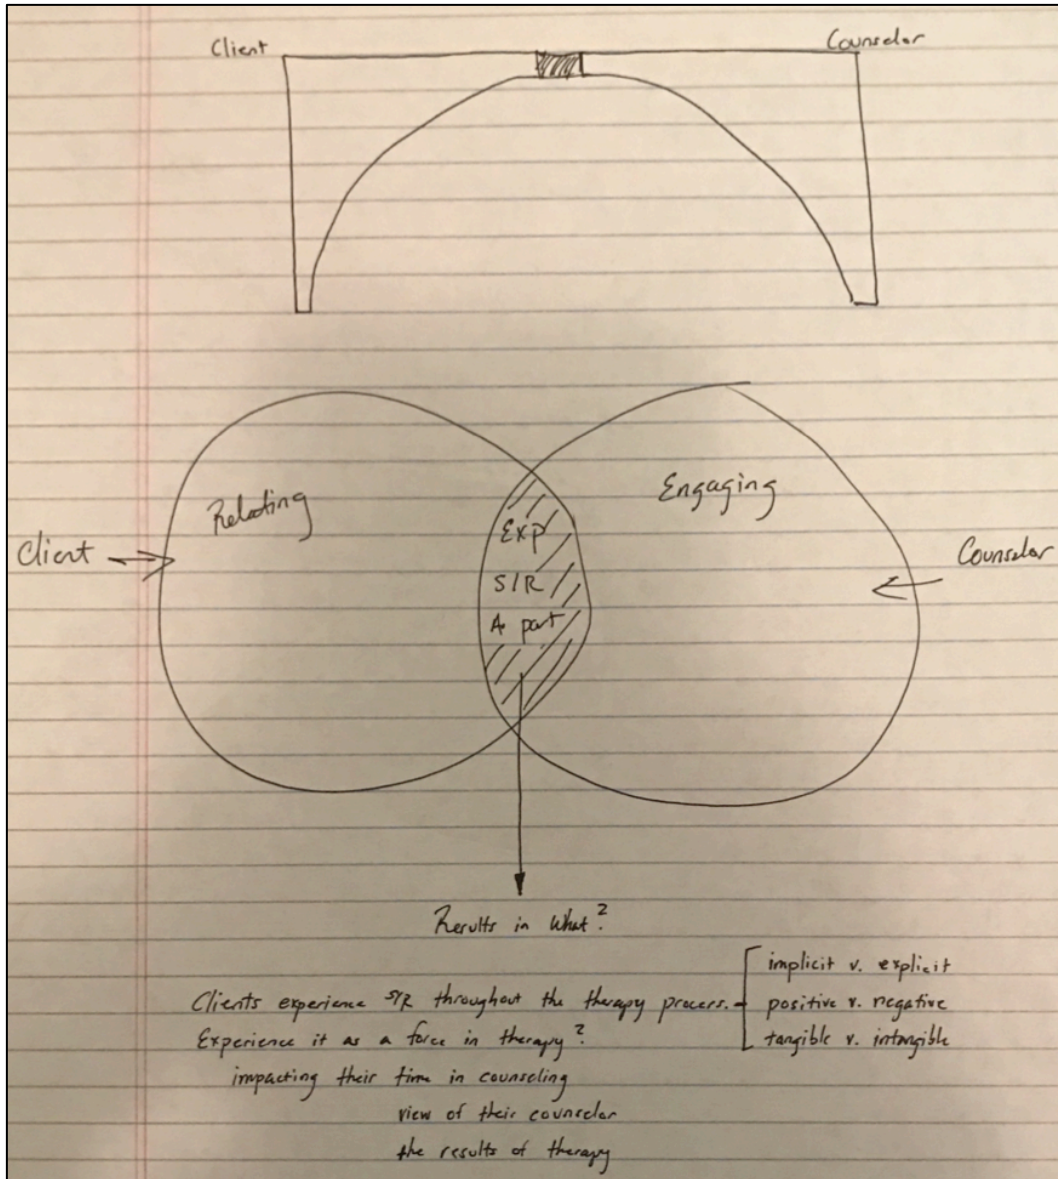 Client
Counselor
Relating
Engaging
Client
Counselor
Exp
S/R
As part
Results in What?
Clients experience S/R throughout the therapy process.
implicit v. explicit
positive v. negative
tangible v. intangible
Experience it as a force in therapy?
impacting their time in counseling
view of their counselor
the results of therapy